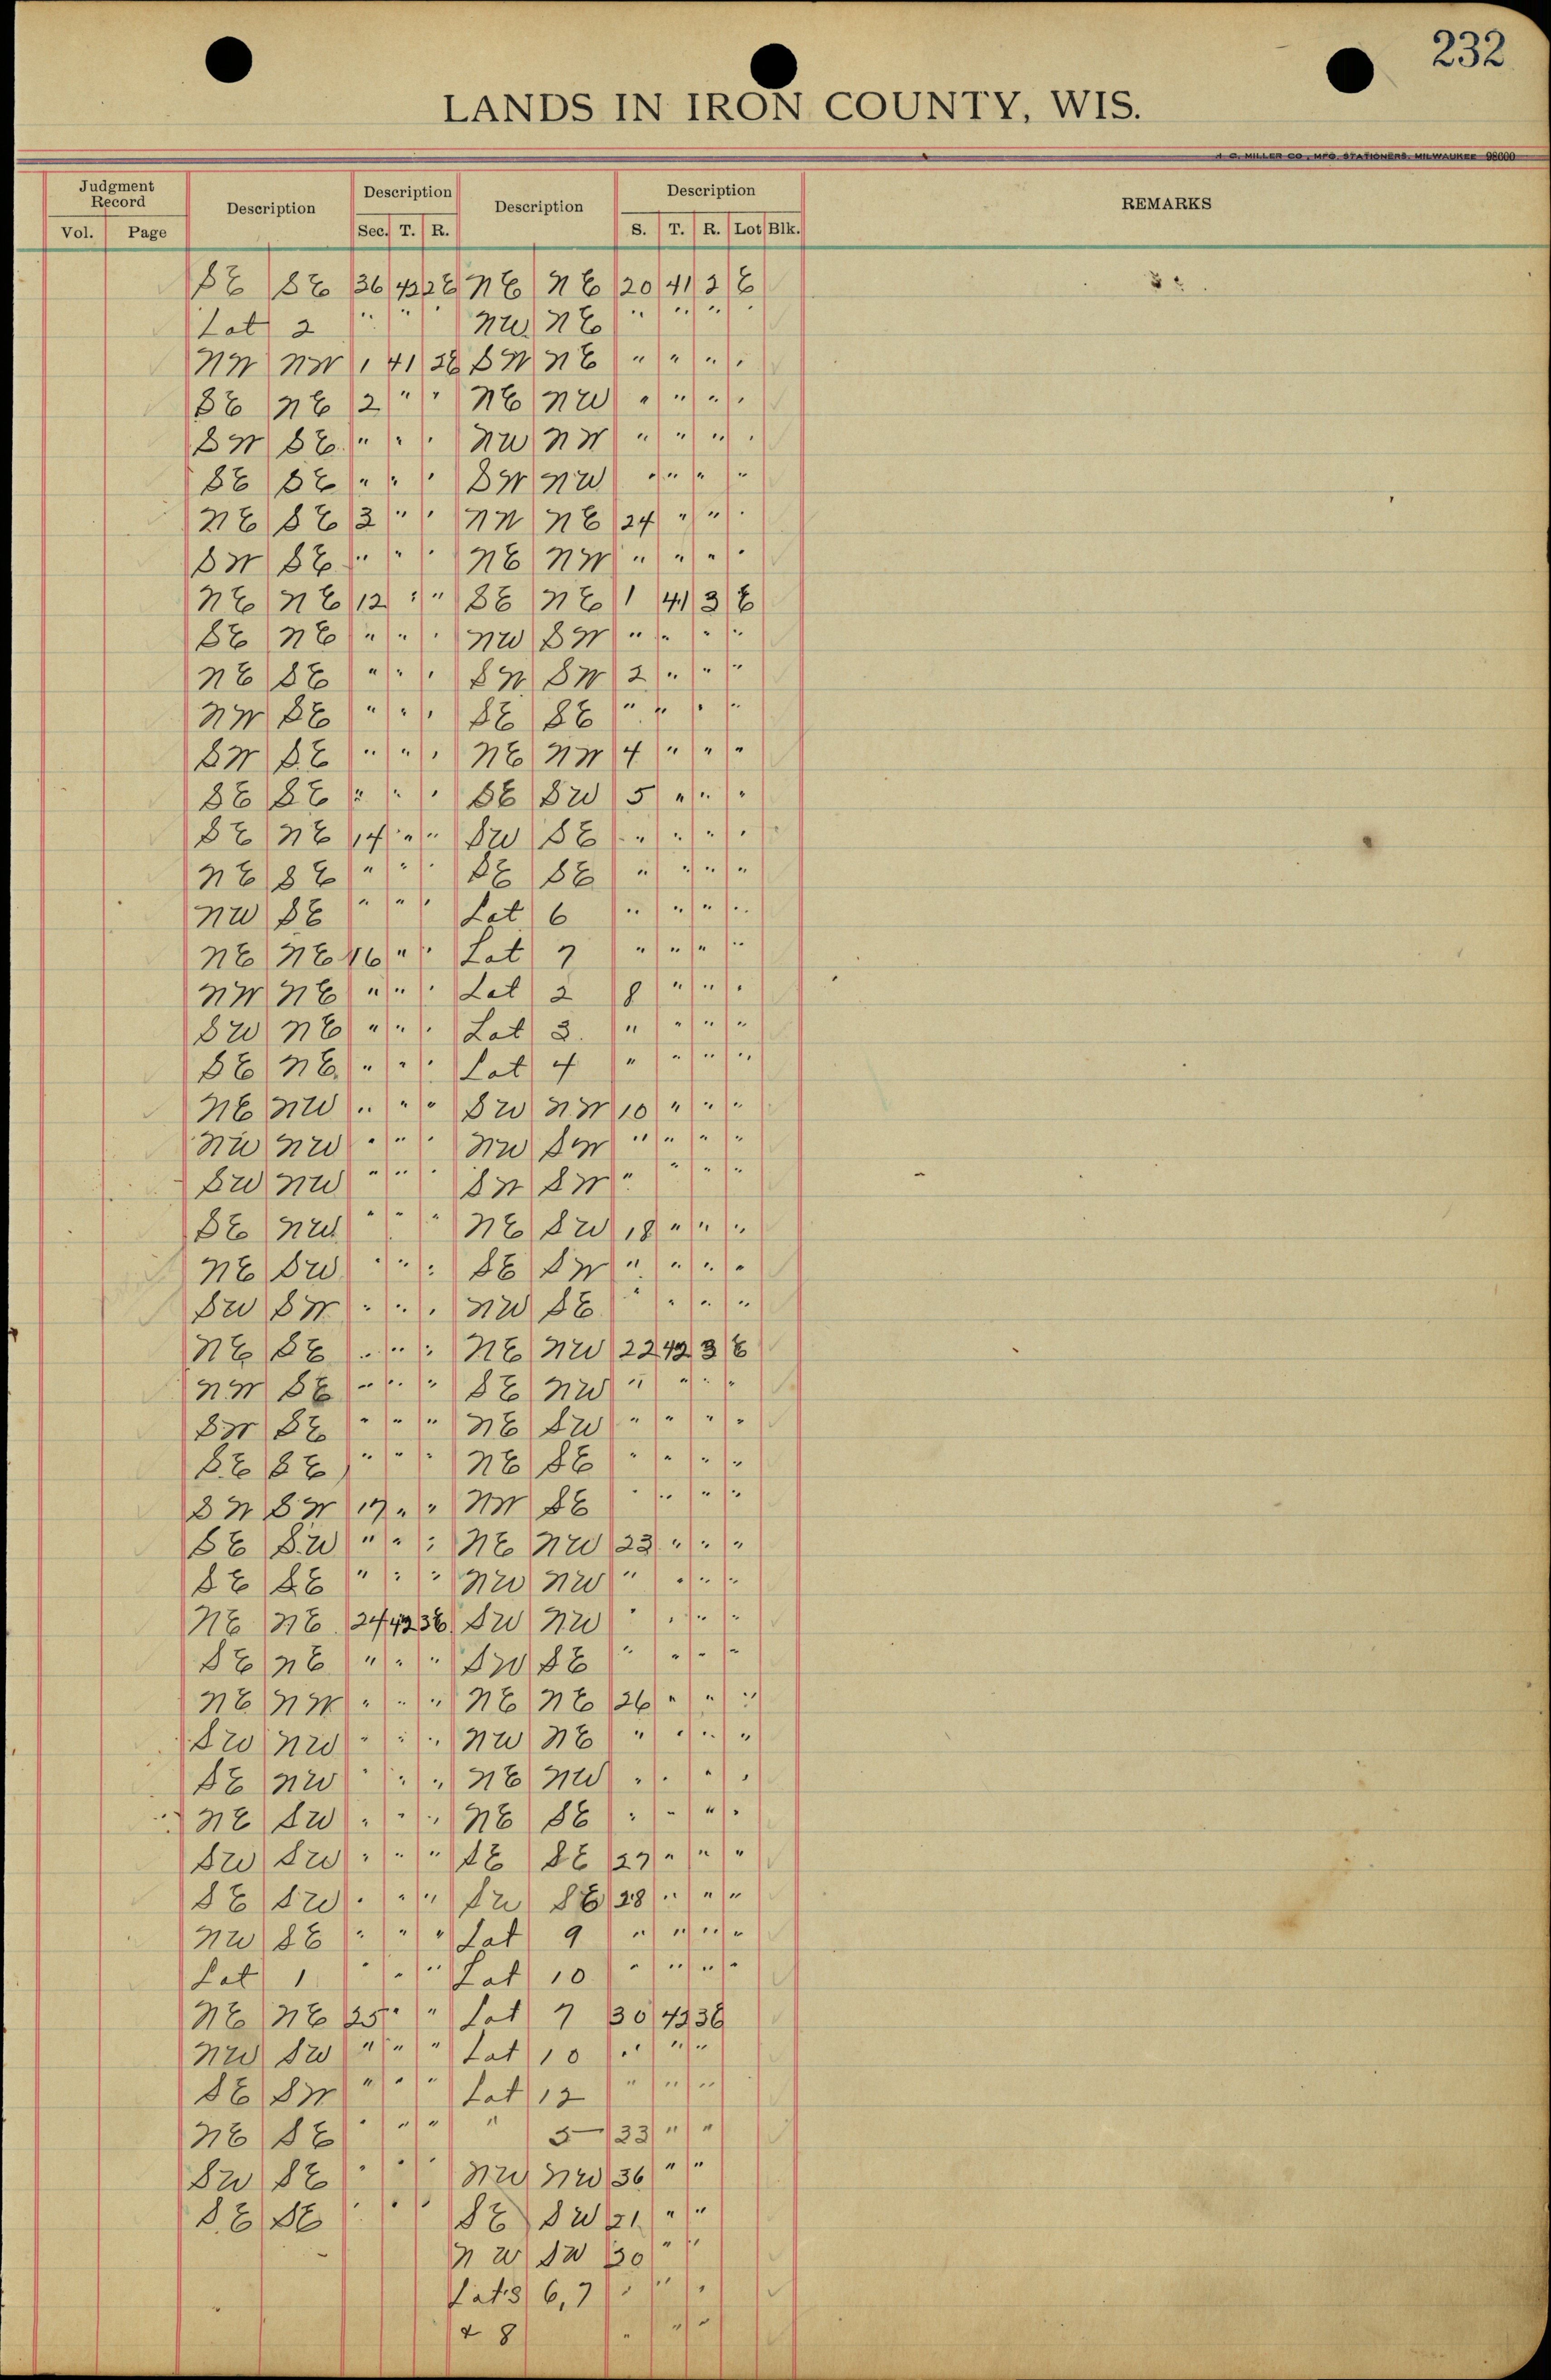 232
LANDS IN IRON COUNTY, WIS.
H. C. MILLER CO., MFG. STATIONERS, MILWAUKEE 98600
Judgment Record Description Description Description Description REMARKS
Vol. Page Sec. T. R. S. T. R. Lot Blk.
SE SE 36 42 2E NE NE 20 41 2 E
Lot 2 " " " NW NE " " " "
NW NW 1 41 2E SW NE " " " "
SE NE 2 " " NE NW " " " "
SW SE " " " NW NW " " " "
SE SE " " " SW NW " " " "
NE SE 3 " " NW NE 24 " " "
SW SE " " " NE NW " " " "
NE NE 12 " " SE NE 1 41 3 E
SE NE " " " NW SW " " " "
NE SE " " " SW SW 2 " " "
NW SE " " " SE SE " " " "
SW SE " " " NE NW 4 " " "
SE SE " " " SE SW 5 " " "
SE NE 14 " " SW SE " " " "
NE SE " " " SE SE " " " "
NW SE " " " Lot 6 " " " "
NE NE 16 " " Lot 7 " " " "
NW NE " " " Lot 2 8 " " "
SW NE " " " Lot 3. " " " "
SE NE " " " Lot 4 " " " "
NE NW " " " SW NW 10 " " "
NW NW " " " NW SW " " " "
SW NW " " " SW SW " " " "
SE NW " " " NE SW 18 " " "
NE SW " " " SE SW " " " "
SW SW " " " NW SE " " " "
NE SE " " " NE NW 22 42 3 E
NW SE " " " SE NW " " " "
SW SE " " " NE SW " " " "
SE SE " " " NE SE " " " "
SW SW 17 " " NW SE " " " "
SE SW " " " NE NW 23 " " "
SE SE " " " NW NW " " " "
NE NE 24 42 3E SW NW " " " "
SE NE " " " SW SE " " " "
NE NW " " " NE NE 26 " " "
SW NW " " " NW NE " " " "
SE NW " " " NE NW " " " "
NE SW " " " NE SE " " " "
SW SW " " " SE SE 27 " " "
SE SW " " " SW SE 28 " " "
NW SE " " " Lot 9 " " " "
Lot 1 " " " Lot 10 " " " "
NE NE 25 " " Lot 7 30 42 3E
NW SW " " " Lot 10 " " "
SE SW " " " Lot 12 " " "
NE SE " " " " 5 33 " "
SW SE " " " NW NW 36 " "
SE SE " " " SE SW 21 " "
NW SW 30 " "
Lots 6, 7 " " "
& 8 " " "